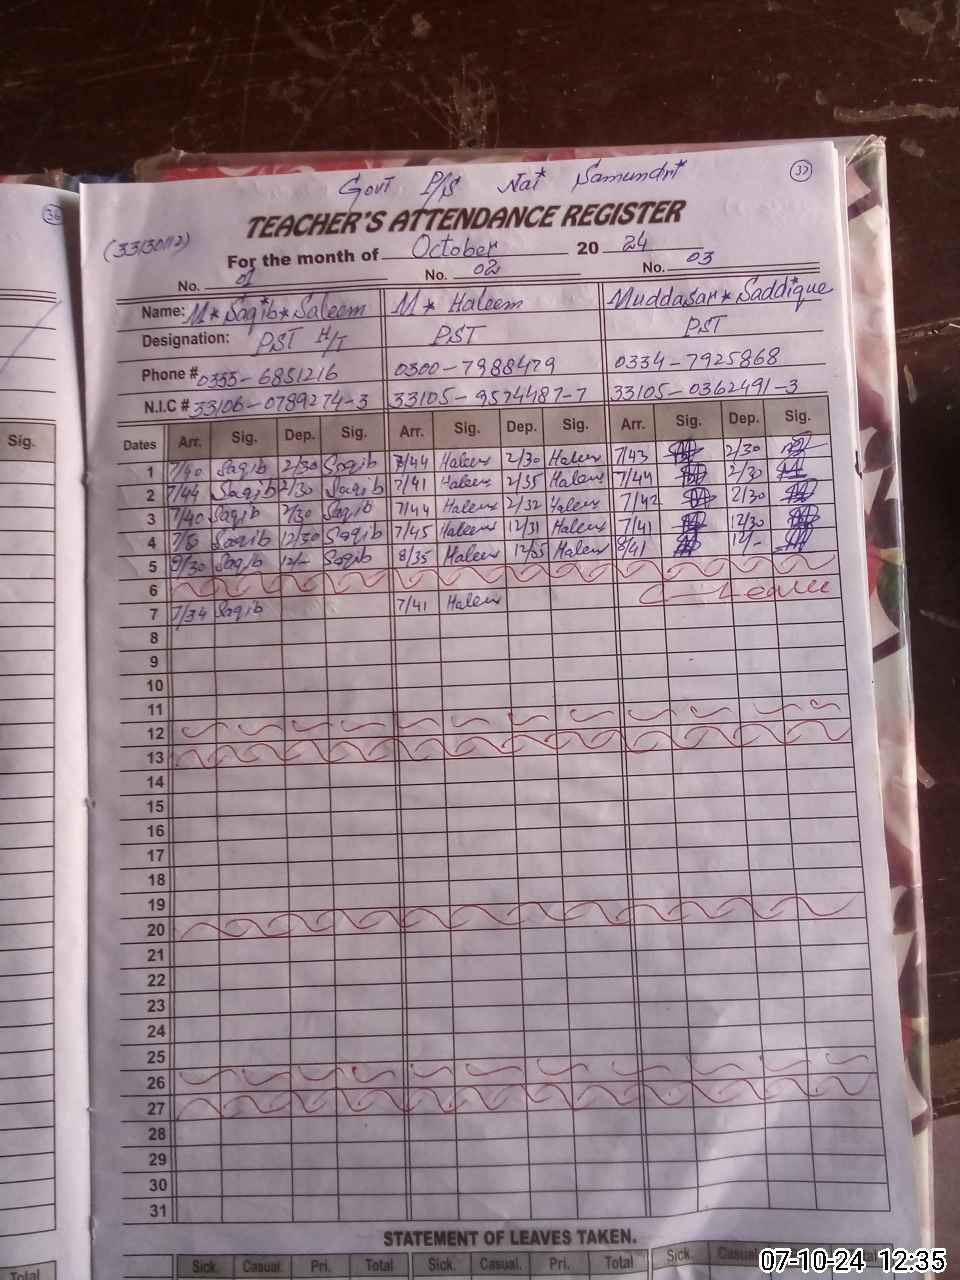 36
Govt P/S Nai Samundri 37
TEACHER'S ATTENDANCE REGISTER
(33130112)
For the month of October 20 24
No. 01 No. 02 No. 03
Name: M* Saqib* Saleem M* Haleem Muddasar* Saddique
Designation: PST H/T PST PST
Phone # 0333-6851216 0300-7988479 0334-7925868
N.I.C # 33106-0789274-3 33105-9574487-7 33105-0362491-3
Sig. Dates Arr. Sig. Dep. Sig. Arr. Sig. Dep. Sig. Arr. Sig. Dep. Sig.
1 7/40 Saqib 2/30 Saqib 7/44 Haleem 2/30 Haleem 7/43 2/30
2 7/44 Saqib 2/30 Saqib 7/41 Haleem 2/35 Haleem 7/44 2/30
3 7/40 Saqib 2/30 Saqib 7/44 Haleem 2/32 Haleem 7/42 2/30
4 Saqib 12/30 Saqib 7/45 Haleem 12/31 Haleem 7/41 12/30
5 8/30 Saqib 12/- Saqib 8/35 Haleem 12/05 Haleem 8/41 12/-
6
7 7/34 Saqib 7/41 Haleem C-Leave
8
9
10
11
12
13
14
15
16
17
18
19
20
21
22
23
24
25
26
27
28
29
30
31
STATEMENT OF LEAVES TAKEN.
Total Sick. Casual. Pri. Total Sick. Casual. Pri. Total Sick. Casual Total
07-10-24 12:35